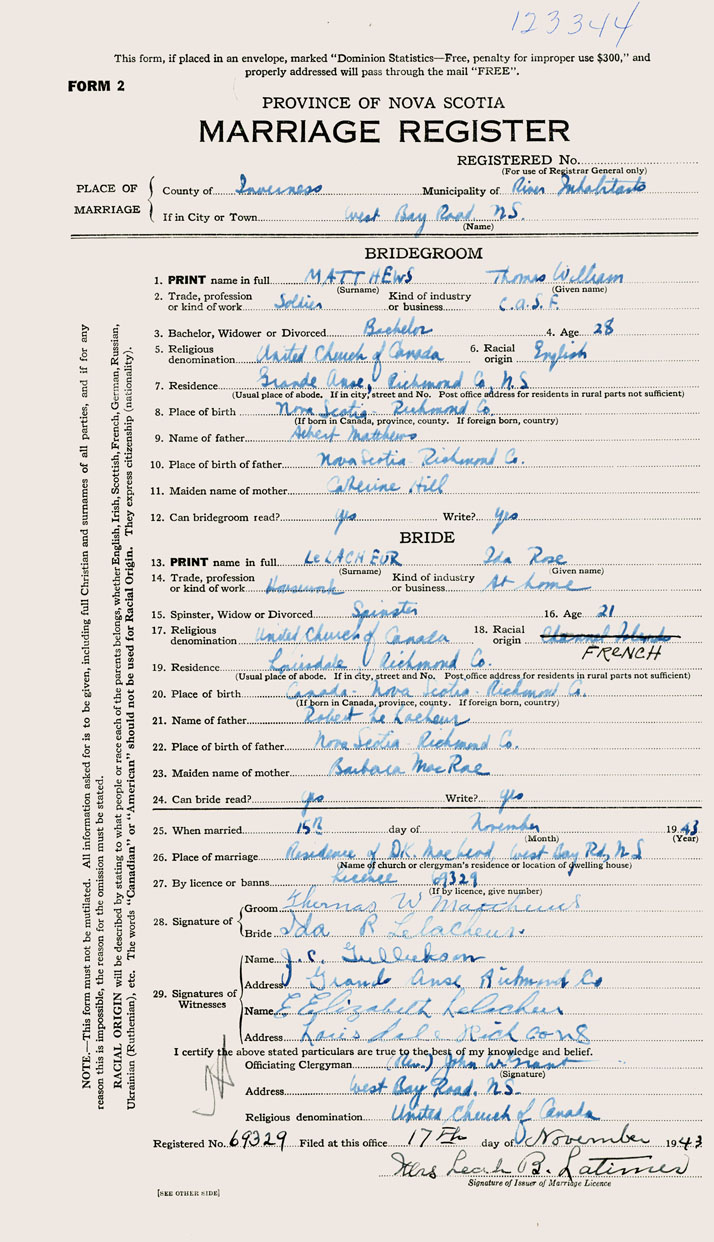 123344
This form, if placed in an envelope, marked "Dominion Statistics—Free, penalty for improper use $300," and
properly addressed will pass through the mail "FREE".
FORM 2
PROVINCE OF NOVA SCOTIA
MARRIAGE REGISTER
REGISTERED No.
(For use of Registrar General only)
PLACE OF MARRIAGE
County of Inverness Municipality of River Inhabitants
If in City or Town West Bay Road, N.S.
(Name)
BRIDEGROOM
1. PRINT name in full MATTHEWS Thomas William
(Surname) (Given name)
2. Trade, profession or kind of work Soldier Kind of industry or business C.A.S.F.
3. Bachelor, Widower or Divorced Bachelor 4. Age 28
5. Religious denomination United Church of Canada 6. Racial origin English
7. Residence Grande Anse, Richmond Co, N.S
(Usual place of abode. If in city, street and No. Post office address for residents in rural parts not sufficient)
8. Place of birth Nova Scotia - Richmond Co.
(If born in Canada, province, county. If foreign born, country)
9. Name of father Albert Matthews
10. Place of birth of father Nova Scotia - Richmond Co.
11. Maiden name of mother Catherine Hill
12. Can bridegroom read? yes Write? yes
BRIDE
13. PRINT name in full LeLACHEUR Ida Rose
(Surname) (Given name)
14. Trade, profession or kind of work Housework Kind of industry or business At home
15. Spinster, Widow or Divorced Spinster 16. Age 21
17. Religious denomination United Church of Canada 18. Racial origin Channel Islands
FRENCH
19. Residence Louisdale Richmond Co.
(Usual place of abode. If in city, street and No. Post office address for residents in rural parts not sufficient)
20. Place of birth Canada - Nova Scotia - Richmond Co.
(If born in Canada, province, county. If foreign born, country)
21. Name of father Robert LeLacheur
22. Place of birth of father Nova Scotia - Richmond Co.
23. Maiden name of mother Barbara MacRae
24. Can bride read? yes Write? yes
25. When married 15th day of November 1943
(Month) (Year)
26. Place of marriage Residence of D.K. MacLeod, West Bay Rd, N.S
(Name of church or clergyman's residence or location of dwelling house)
27. By licence or banns Licence 69329
(If by licence, give number)
28. Signature of
Groom Thomas W Matthews
Bride Ida R Lelacheur
29. Signatures of Witnesses
Name J.C. Gullickson
Address Grande Anse Richmond Co
Name E Elizabeth Lelacheur
Address Louisdale Rich co NS
I certify the above stated particulars are true to the best of my knowledge and belief.
Officiating Clergyman (Rev.) John W. Grant
(Signature)
Address West Bay Road, N.S.
Religious denomination United Church of Canada
Registered No. 69329 Filed at this office 17th day of November 1943
Mrs Leah B. Latimer
Signature of Issuer of Marriage Licence
[SEE OTHER SIDE]
NOTE.—This form must not be mutilated. All information asked for is to be given, including full Christian and surnames of all parties, and if for any
reason this is impossible, the reason for the omission must be stated.
RACIAL ORIGIN will be described by stating to what people or race each of the parents belongs, whether English, Irish, Scottish, French, German, Russian,
Ukrainian (Ruthenian), etc. The words "Canadian" or "American" should not be used for Racial Origin. They express citizenship (nationality).